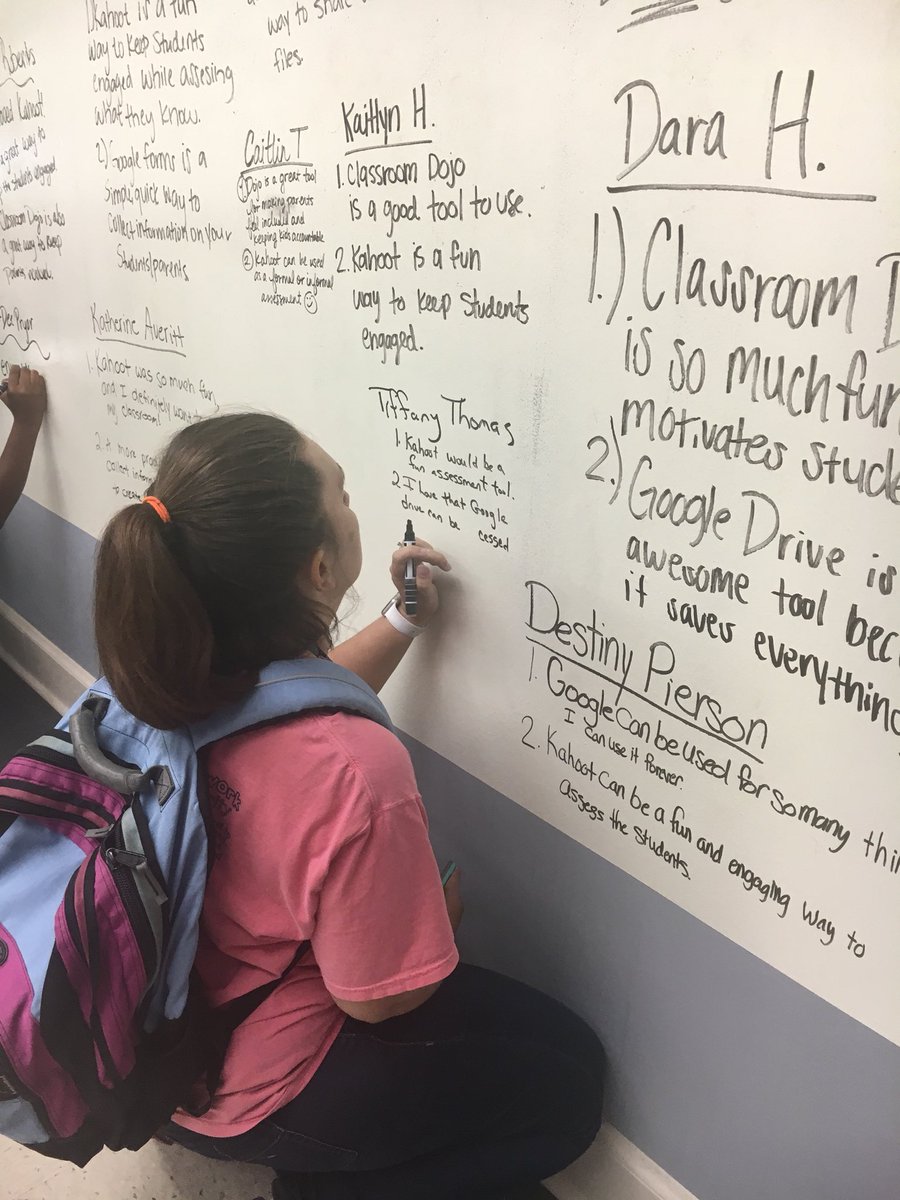 Roberts
great way to
Classroom Dojo is also
a great way to keep
Dee Pryor
Kahoot is a fun
way to keep Students
engaged while assesing
what they know.
2) Google forms is a
simple quick way to
collect information on your
Students/parents
Katherine Averitt
1. Kahoot was so much fun
and I definitely want
my classroom!
2. A more
collect
to create
way to share
files.
Caitlin T
① Dojo is a great tool
making parents
feel included and
keeping kids accountable
② Kahoot can be used
as a formal or informal
assessment ☺
Kaitlyn H.
1. Classroom Dojo
is a good tool to use.
2. Kahoot is a fun
way to keep Students
engaged.
Tiffany Thomas
1. Kahoot would be a
fun assessment tool.
2. I love that Google
drive can be cessed
Dara H.
1.) Classroom D
is so much fun
motivates stude
2.) Google Drive is
awesome tool bec
it saves everything
Destiny Pierson
1. Google Can be used for so many thin
I can use it forever.
2. Kahoot can be a fun and engaging way to
assess the students.
work